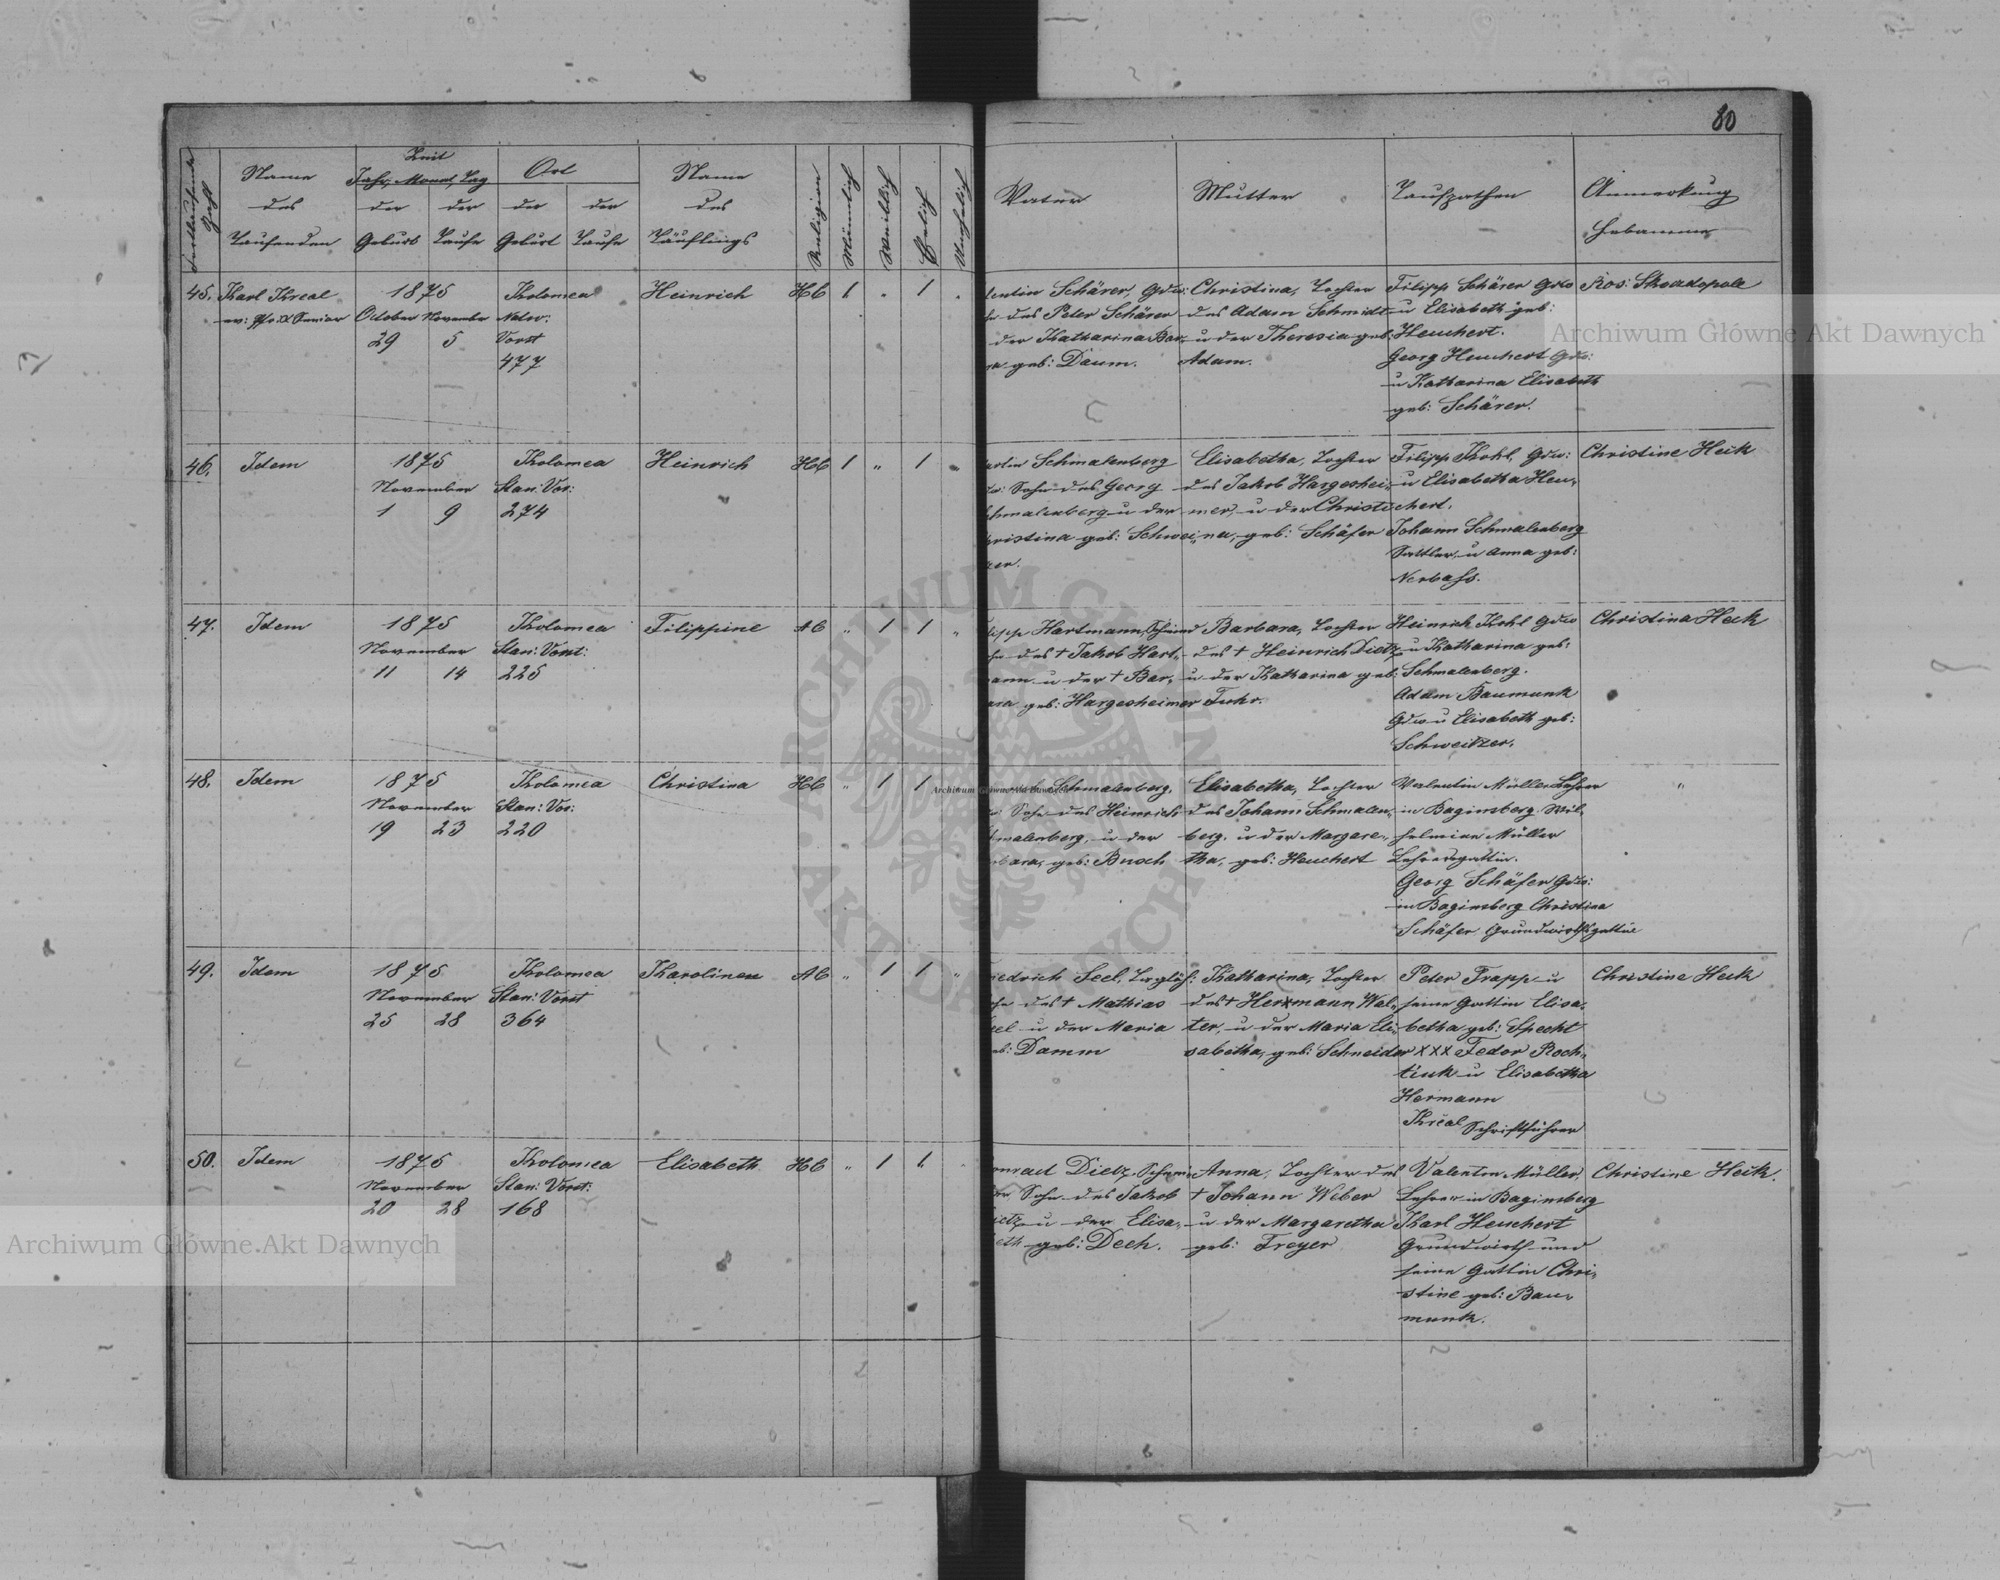 80
Fortlaufende Zahl
Name des Taufenden
Zeit
Jahr, Monat, Tag
der Geburt
der Taufe
Ort
der Geburt
der Taufe
Name des Täuflings
Religion
Männlich
Weiblich
Ehelich
Unehelich
Vater
Mutter
Taufpathen
Anmerkung
Hebamme
45. Karl Kreal
ev: Pfr u Senior
1875
October November
29 5
Kolomea
Nadw:
Vorst
477
Heinrich
HC 1 " 1 "
lentin Schärer, Gdw:
des Peter Schärer
der Katharina Bar,
ra geb: Daum.
Christina, Tochter
des Adam Schmidt
u der Theresia geb:
Adam.
Filipp Schärer Gdw
u Elisabeth geb:
Heuchert.
Georg Heuchert Gdw:
u Katharina Elisabeth
geb: Schärer.
Ros: Skoadopole
46. Idem
1875
November
1 9
Kolomea
Stan: Vor:
274
Heinrich
HC 1 " 1 "
artin Schmalenberg
Sohn des Georg
chmalenberg u der
hristina geb: Schwei,
zer.
Elisabetha, Tochter
des Jakob Hargeshei,
mer, u der Christi
na, geb: Schäfer
Filipp Kohl, Gdw:
u Elisabetha Heu,
chert.
Johann Schmalenberg
Sattler, u Anna geb:
Nerbass.
Christine Heck
47. Idem
1875
November
11 14
Kolomea
Stan: Vorst:
225
Filippine
AC " 1 1 "
lipp Hartmann, Schmied
des † Jakob Hart,
mann u der † Bar,
ara geb: Hargesheimer
Barbara, Tochter
des † Heinrich Dietz,
u der Katharina geb:
Fuhr.
Heinrich Kohl Gdw
u Katharina geb:
Schmalenberg.
Adam Baumunk
Gdw u Elisabeth geb:
Schweitzer.
Christina Heck
48. Idem
1875
November
19 23
Kolomea
Stan: Vor:
220
Christina
HC " 1 1
Schmalenberg,
Sohn des Heinrich
hmalenberg, u der
rbara, geb: Busch
Elisabetha, Tochter
des Johann Schmalen,
berg, u der Margare,
tha, geb: Heuchert
Valentin Müller Lehrer
in Baginsberg Wil,
helmine Müller
Lehrersgattin.
Georg Schäfer Gdw:
in Baginsberg Christina
Schäfer Grundwirthsgattin
"
49. Idem
1875
November
25 28
Kolomea
Stan: Vorst
364
Karolinen
AC " 1 1 "
iedrich Seel, Taglöh:
des † Mathias
eel u der Maria
eb: Damm
Katharina, Tochter
des † Hermann Wal,
ter, u der Maria Eli,
sabetha, geb: Schneider
Peter Trapp u
seine Gattin Elisa,
betha geb: Specht
XXX Fedor Roch,
tiuk u Elisabetha
Hermann
Kreal Schriftführer
Christine Heck
50. Idem
1875
November
20 28
Kolomea
Stan: Vorst:
168
Elisabeth
HC " 1 1 "
onrad Dietz, Schmie,
Sohn des Jakob
ietz u der Elisa,
eth geb: Dech.
Anna, Tochter des
† Johann Weber
u der Margaretha
geb: Treyer
Valentin Müller,
Lehrer in Baginsberg
Karl Heuchert
Grundwirth und
seine Gattin Chri,
stine geb: Bau,
munk.
Christine Heck.
Archiwum Główne Akt Dawnych
Archiwum Główne Akt Dawnych
Archiwum Główne Akt Dawnych
ARCHIWUM GŁÓWNE AKT DAWNYCH